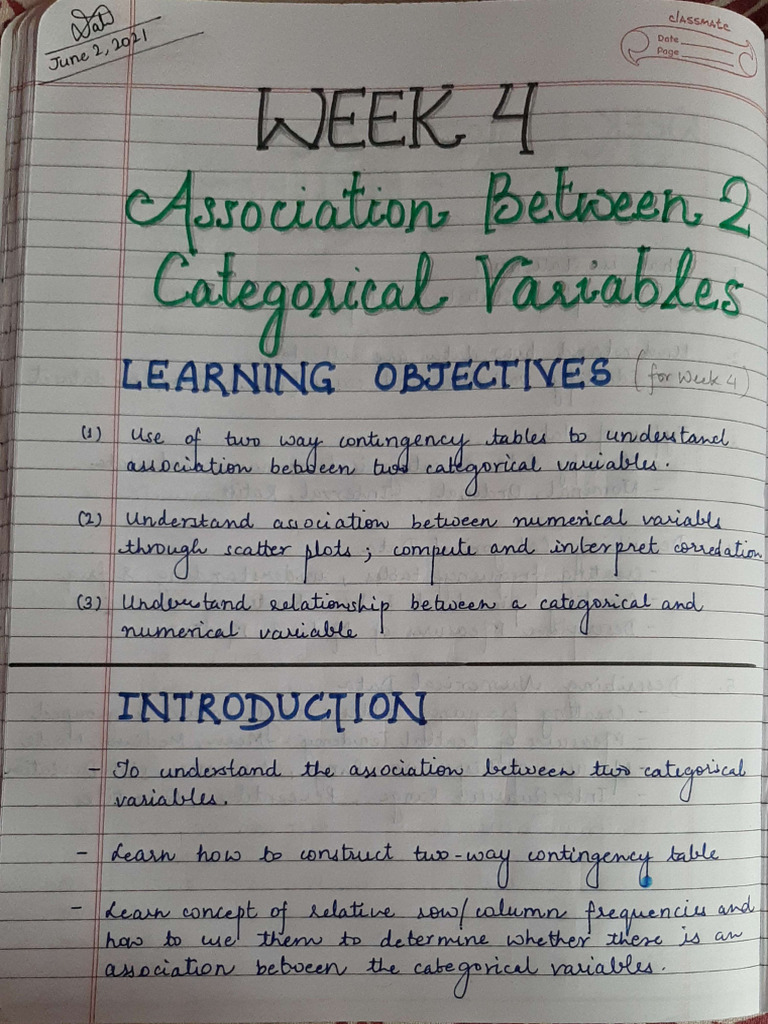 Date
June 2, 2021
CLASSMATE
Date
Page
WEEK 4
Association Between 2
Categorical Variables
LEARNING OBJECTIVES (for Week 4)
(1) Use of two way contingency tables to understand
association between two categorical variables.
(2) Understand association between numerical variables
through scatter plots ; compute and interpret correlation
(3) Understand relationship between a categorical and
numerical variable
INTRODUCTION
- To understand the association between two categorical
variables.
- Learn how to construct two-way contingency table
- Learn concept of relative row/column frequencies and
how to use them to determine whether there is an
association between the categorical variables.